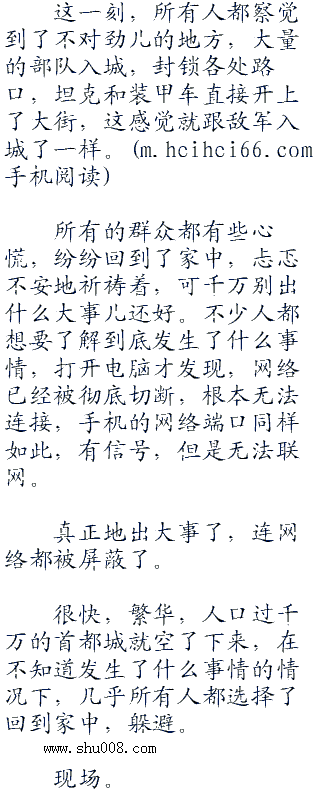 这一刻，所有人都察觉
到了不对劲儿的地方，大量
的部队入城，封锁各处路
口，坦克和装甲车直接开上
了大街，这感觉就跟敌军入
城了一样。(m.hcihci66.com
手机阅读)
所有的群众都有些心
慌，纷纷回到了家中，忐忑
不安地祈祷着，可千万别出
什么大事儿还好。不少人都
想要了解到底发生了什么事
情，打开电脑才发现，网络
已经被彻底切断，根本无法
连接，手机的网络端口同样
如此，有信号，但是无法联
网。
真正地出大事了，连网
络都被屏蔽了。
很快，繁华，人口过千
万的首都城就空了下来，在
不知道发生了什么事情的情
况下，几乎所有人都选择了
回到家中，躲避。
www.shu008.com
现场。